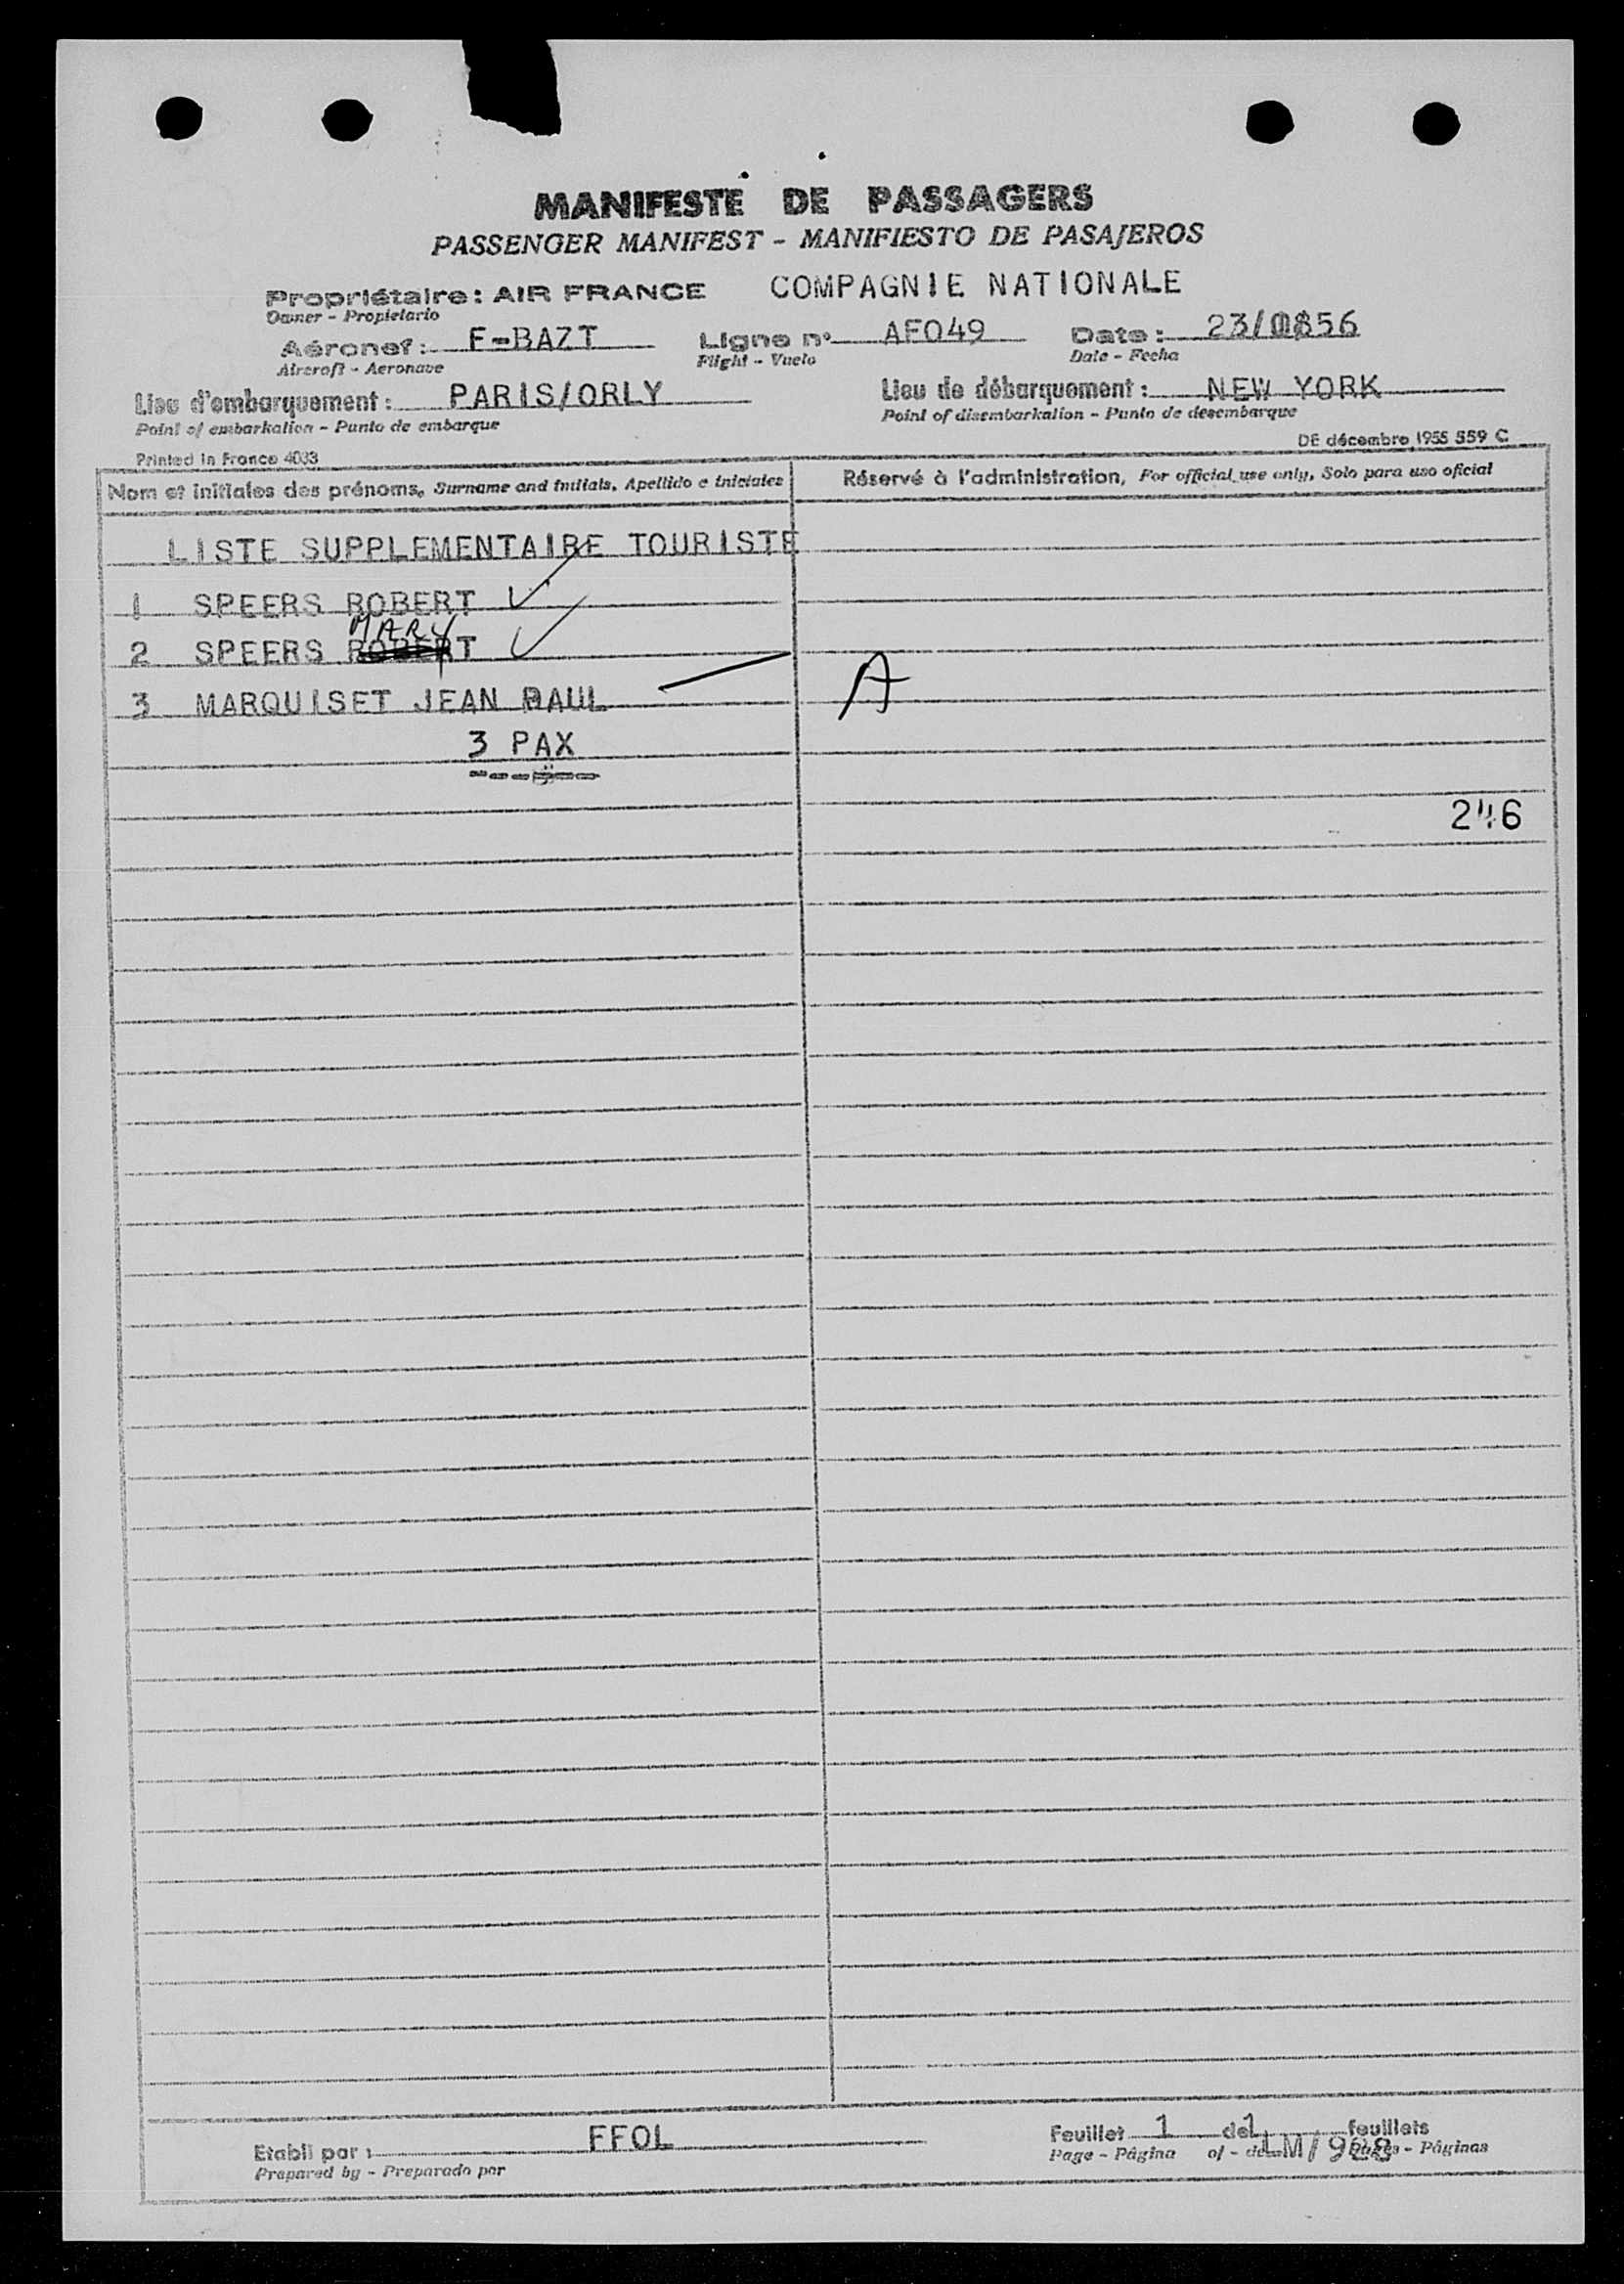 MANIFESTE DE PASSAGERS
PASSENGER MANIFEST - MANIFIESTO DE PASAJEROS
Propriétaire: AIR FRANCE COMPAGNIE NATIONALE
Owner - Propietario
Aéronef: F-BAZT Ligne n° AF049 Date:
Aircraft - Aeronave Flight - Vuelo Date - Fecha
Lieu d'embarquement: PARIS/ORLY Lieu de débarquement: NEW YORK
Point of embarkation - Punto de embarque Point of disembarkation - Punto de desembarque
Printed in France 4033 DE décembre 1955 559 C
Nom et initiales des prénoms, Surname and initials, Apellido e iniciales Réservé à l'administration, For official use only, Solo para uso oficial
LISTE SUPPLEMENTAIRE TOURISTE
1 SPEERS ROBERT
MARY
2 SPEERS ROBERT
3 MARQUISET JEAN PAUL A
3 PAX
246
Etabli par: FFOL Feuillet 1 de 1 feuillets
Prepared by - Preparado por Page - Página of - de LM/988 Pages - Páginas